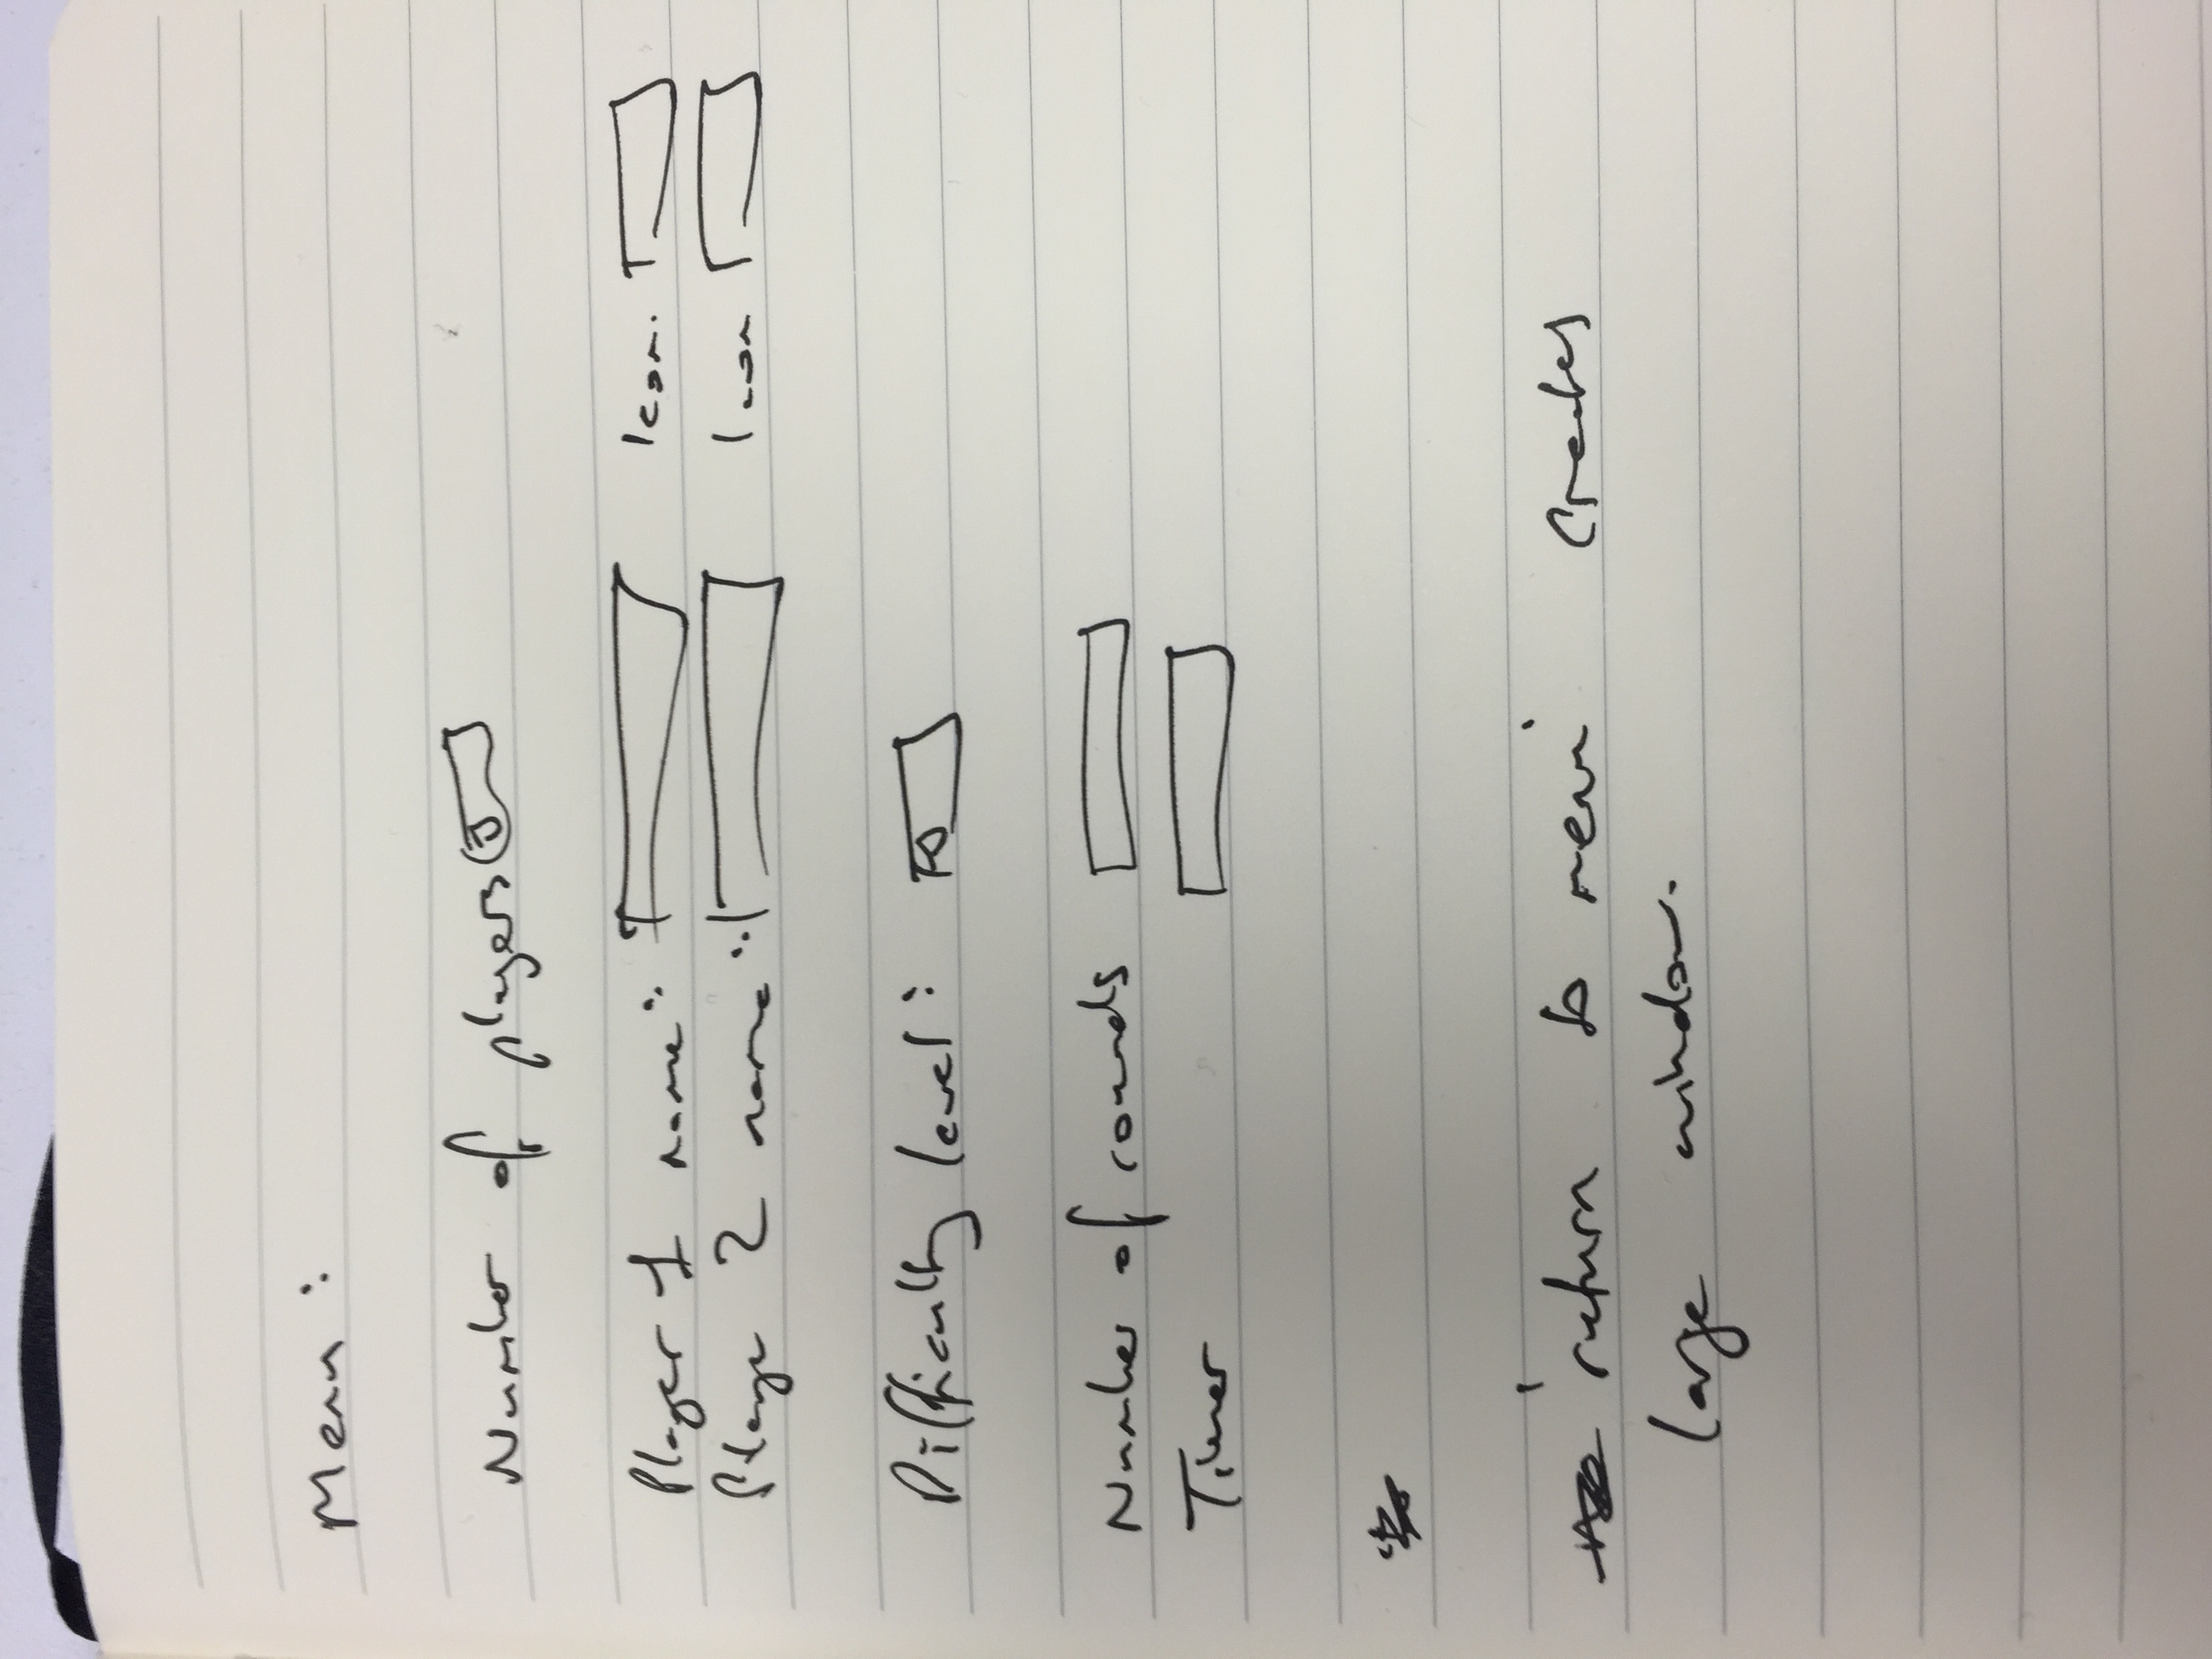 Menu :
Number of players
Player 1 name : Icon.
Player 2 name : Icon
Difficulty level :
Number of rounds
Timer
'return to menu' creates
large window.